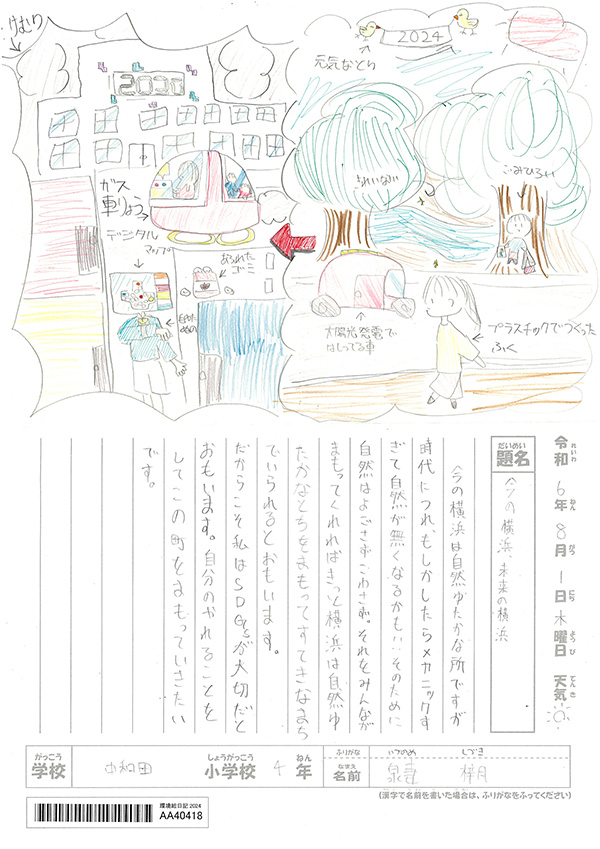 けむり
元気なとり
2024
ガス
車りょう
デジタル
マップ
あふれた
ゴミ
きれいない
ごみひろい
太陽光発電で
はしってる車
プラスチックでつくった
ふく
令和6年8月1日木曜日 天気
れいわ ねん がつ にち ようび てんき
だいめい
題名
今の横浜、未来の横浜
今の横浜は自然ゆたかな所ですが
時代につれ、もしかしたらメカニックす
ぎて自然が無くなるかも…そのために
自然はよごさずこわさず。それをみんなが
まもってくれればきっと横浜は自然ゆ
たかなとちをまもってすてきなまち
でいられるとおもいます。
だからこそ私はSDGsが大切だと
おもいます。自分のやれることを
してこの町をまもっていきたい
です。
がっこう しょうがっこう ねん ふりがな
学校 中和田 小学校 4年
なまえ
名前
(漢字で名前を書いた場合は、ふりがなをふってください)
環境絵日記 2024
AA40418